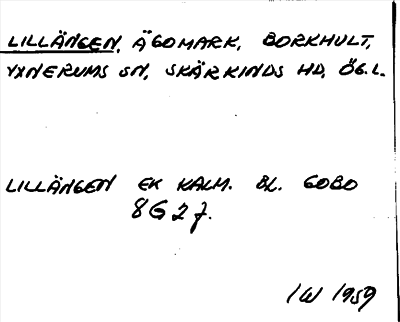 LILLÄNGEN, ÄGOMARK, BORKHULT,
YXNERUMS SN, SKÄRKINDS HD, ÖG.L.
LILLÄNGEN EK KALM. BL. GOBO
8G 2 f.
IW 1959